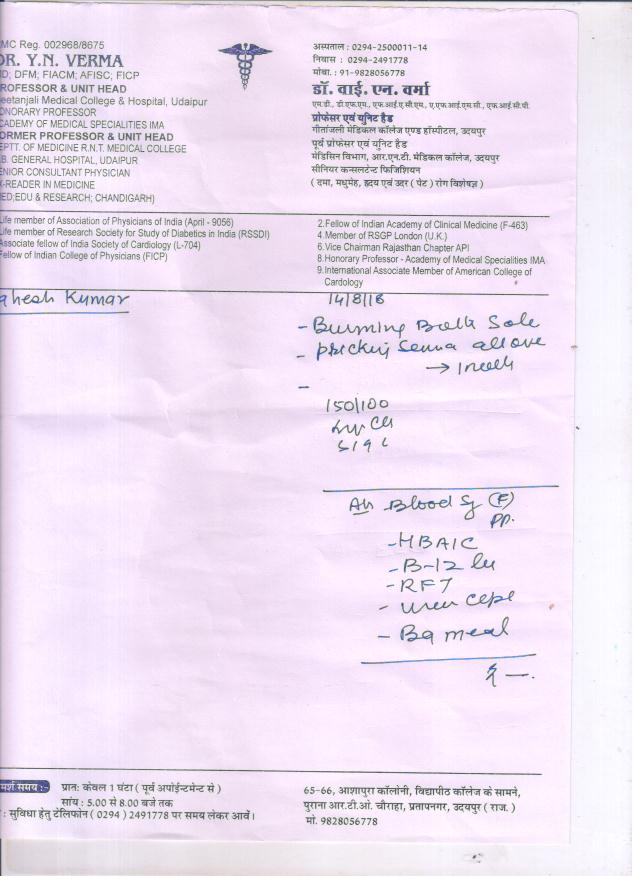 MC Reg. 002968/8675
DR. Y.N. VERMA
D; DFM; FIACM; AFISC; FICP
ROFESSOR & UNIT HEAD
eetanjali Medical College & Hospital, Udaipur
ONORARY PROFESSOR
CADEMY OF MEDICAL SPECIALITIES IMA
ORMER PROFESSOR & UNIT HEAD
EPTT. OF MEDICINE R.N.T. MEDICAL COLLEGE
.B. GENERAL HOSPITAL, UDAIPUR
ENIOR CONSULTANT PHYSICIAN
X-READER IN MEDICINE
ED;EDU & RESEARCH; CHANDIGARH)
अस्पताल : 0294-2500011-14
निवास : 0294-2491778
मोबा. : 91-9828056778
डॉ. वाई. एन. वर्मा
एम.डी., डी.एफ.एम., एफ.आई.ए.सी.एम., ए.एफ.आई.एस.सी., एफ.आई.सी.पी.
प्रोफेसर एवं यूनिट हैड
गीतांजली मेडिकल कॉलेज एण्ड हॉस्पिटल, उदयपुर
पूर्व प्रोफेसर एवं यूनिट हैड
मेडिसिन विभाग, आर.एन.टी. मेडिकल कॉलेज, उदयपुर
सीनियर कन्सलटेन्ट फिजिशियन
( दमा, मधुमेह, हृदय एवं उदर ( पेट ) रोग विशेषज्ञ )
Life member of Association of Physicians of India (April - 9056)
Life member of Research Society for Study of Diabetics in India (RSSDI)
Associate fellow of India Society of Cardiology (L-704)
Fellow of Indian College of Physicians (FICP)
2.Fellow of Indian Academy of Clinical Medicine (F-463)
4.Member of RSGP London (U.K.)
6.Vice Chairman Rajasthan Chapter API
8.Honorary Professor - Academy of Medical Specialities IMA
9.International Associate Member of American College of
Cardiology
ahesh Kumar
14/8/18
- Burning Both Sole
- all ove
150/100
Blood (F)
PP.
- HBAIC
- B-12
- RFT
-
- Ba meal
मर्श समय :- प्रात: केवल 1 घंटा ( पूर्व अपोईन्टमेन्ट से )
सांय : 5.00 से 8.00 बजे तक
: सुविधा हेतु टेलिफोन ( 0294 ) 2491778 पर समय लेकर आवें।
65-66, आशापुरा कॉलोनी, विद्यापीठ कॉलेज के सामने,
पुराना आर.टी.ओ. चौराहा, प्रतापनगर, उदयपुर ( राज. )
मो. 9828056778